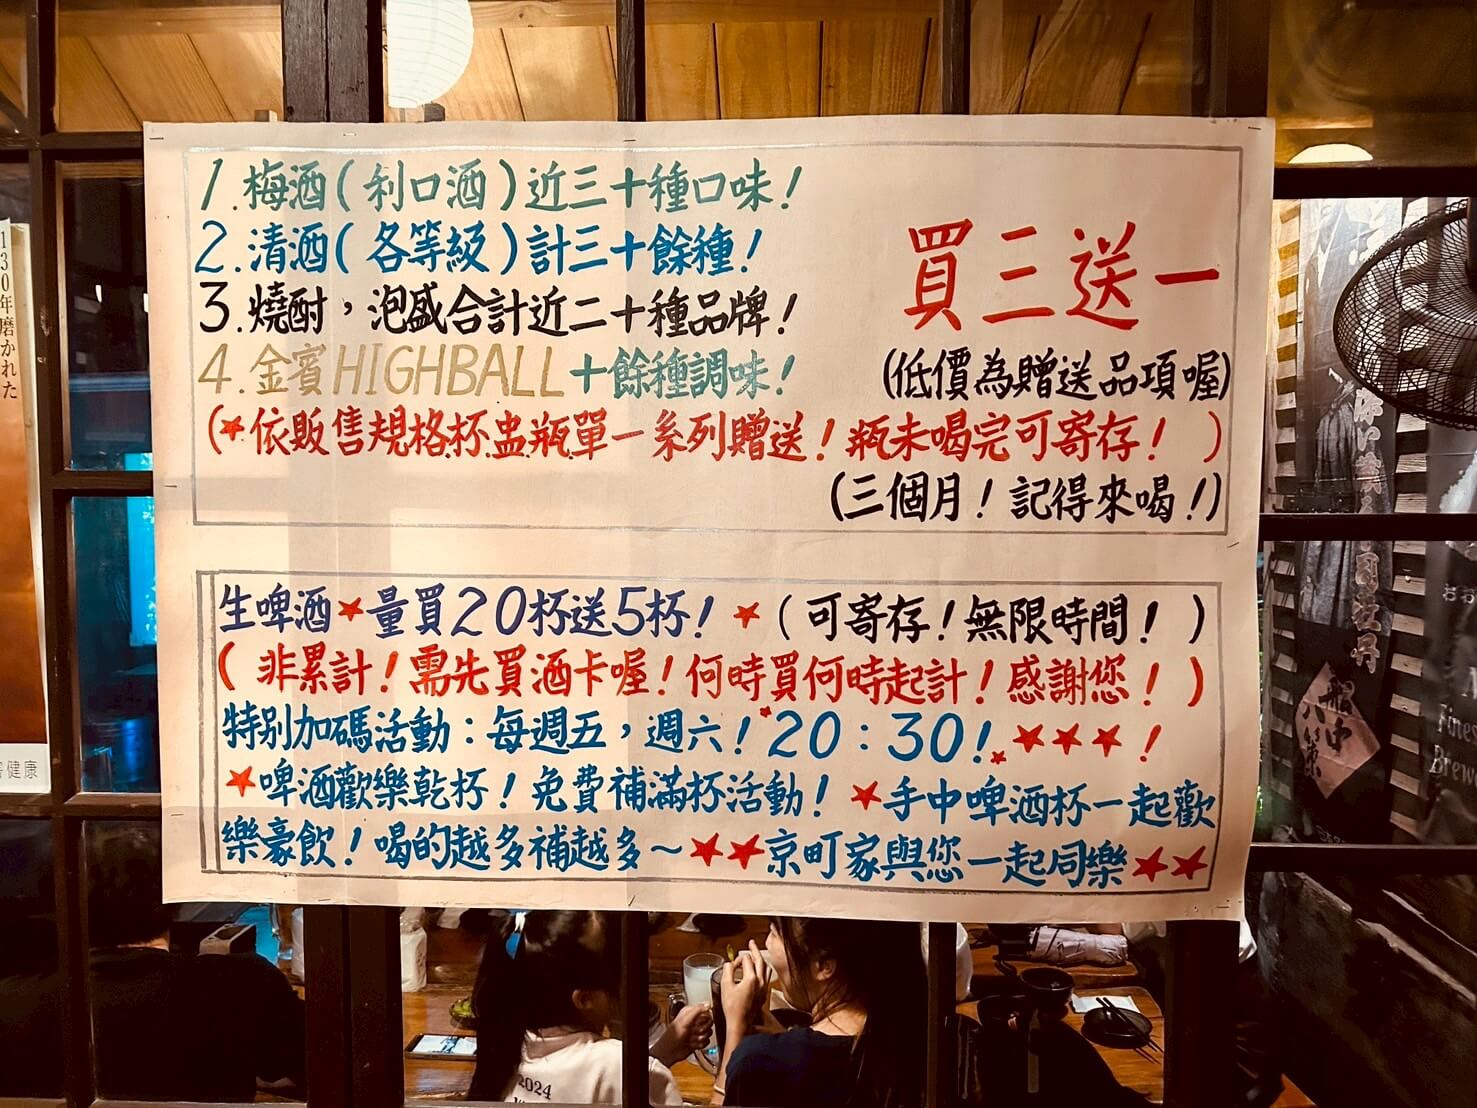 1.梅酒(利口酒)近三十種口味!
2.清酒(各等級)計三十餘種!
3.燒酎,泡盛合計近二十種品牌!
4.金賓HIGHBALL十餘種調味!
買三送一
(低價為贈送品項喔)
(★依販售規格杯.盅.瓶.單一系列贈送!瓶未喝完可寄存!)
(三個月!記得來喝!)
生啤酒★量買20杯送5杯!★(可寄存!無限時間!)
(非累計!需先買酒卡喔!何時買何時起計!感謝您!)
特別加碼活動:每週五,週六!★20:30!★★★★!
★啤酒歡樂乾杯!免費補滿杯活動!★手中啤酒杯一起歡
樂豪飲!喝的越多補越多~★★京町家與您一起同樂★★
130年磨かれた
健康
八船中策
2024